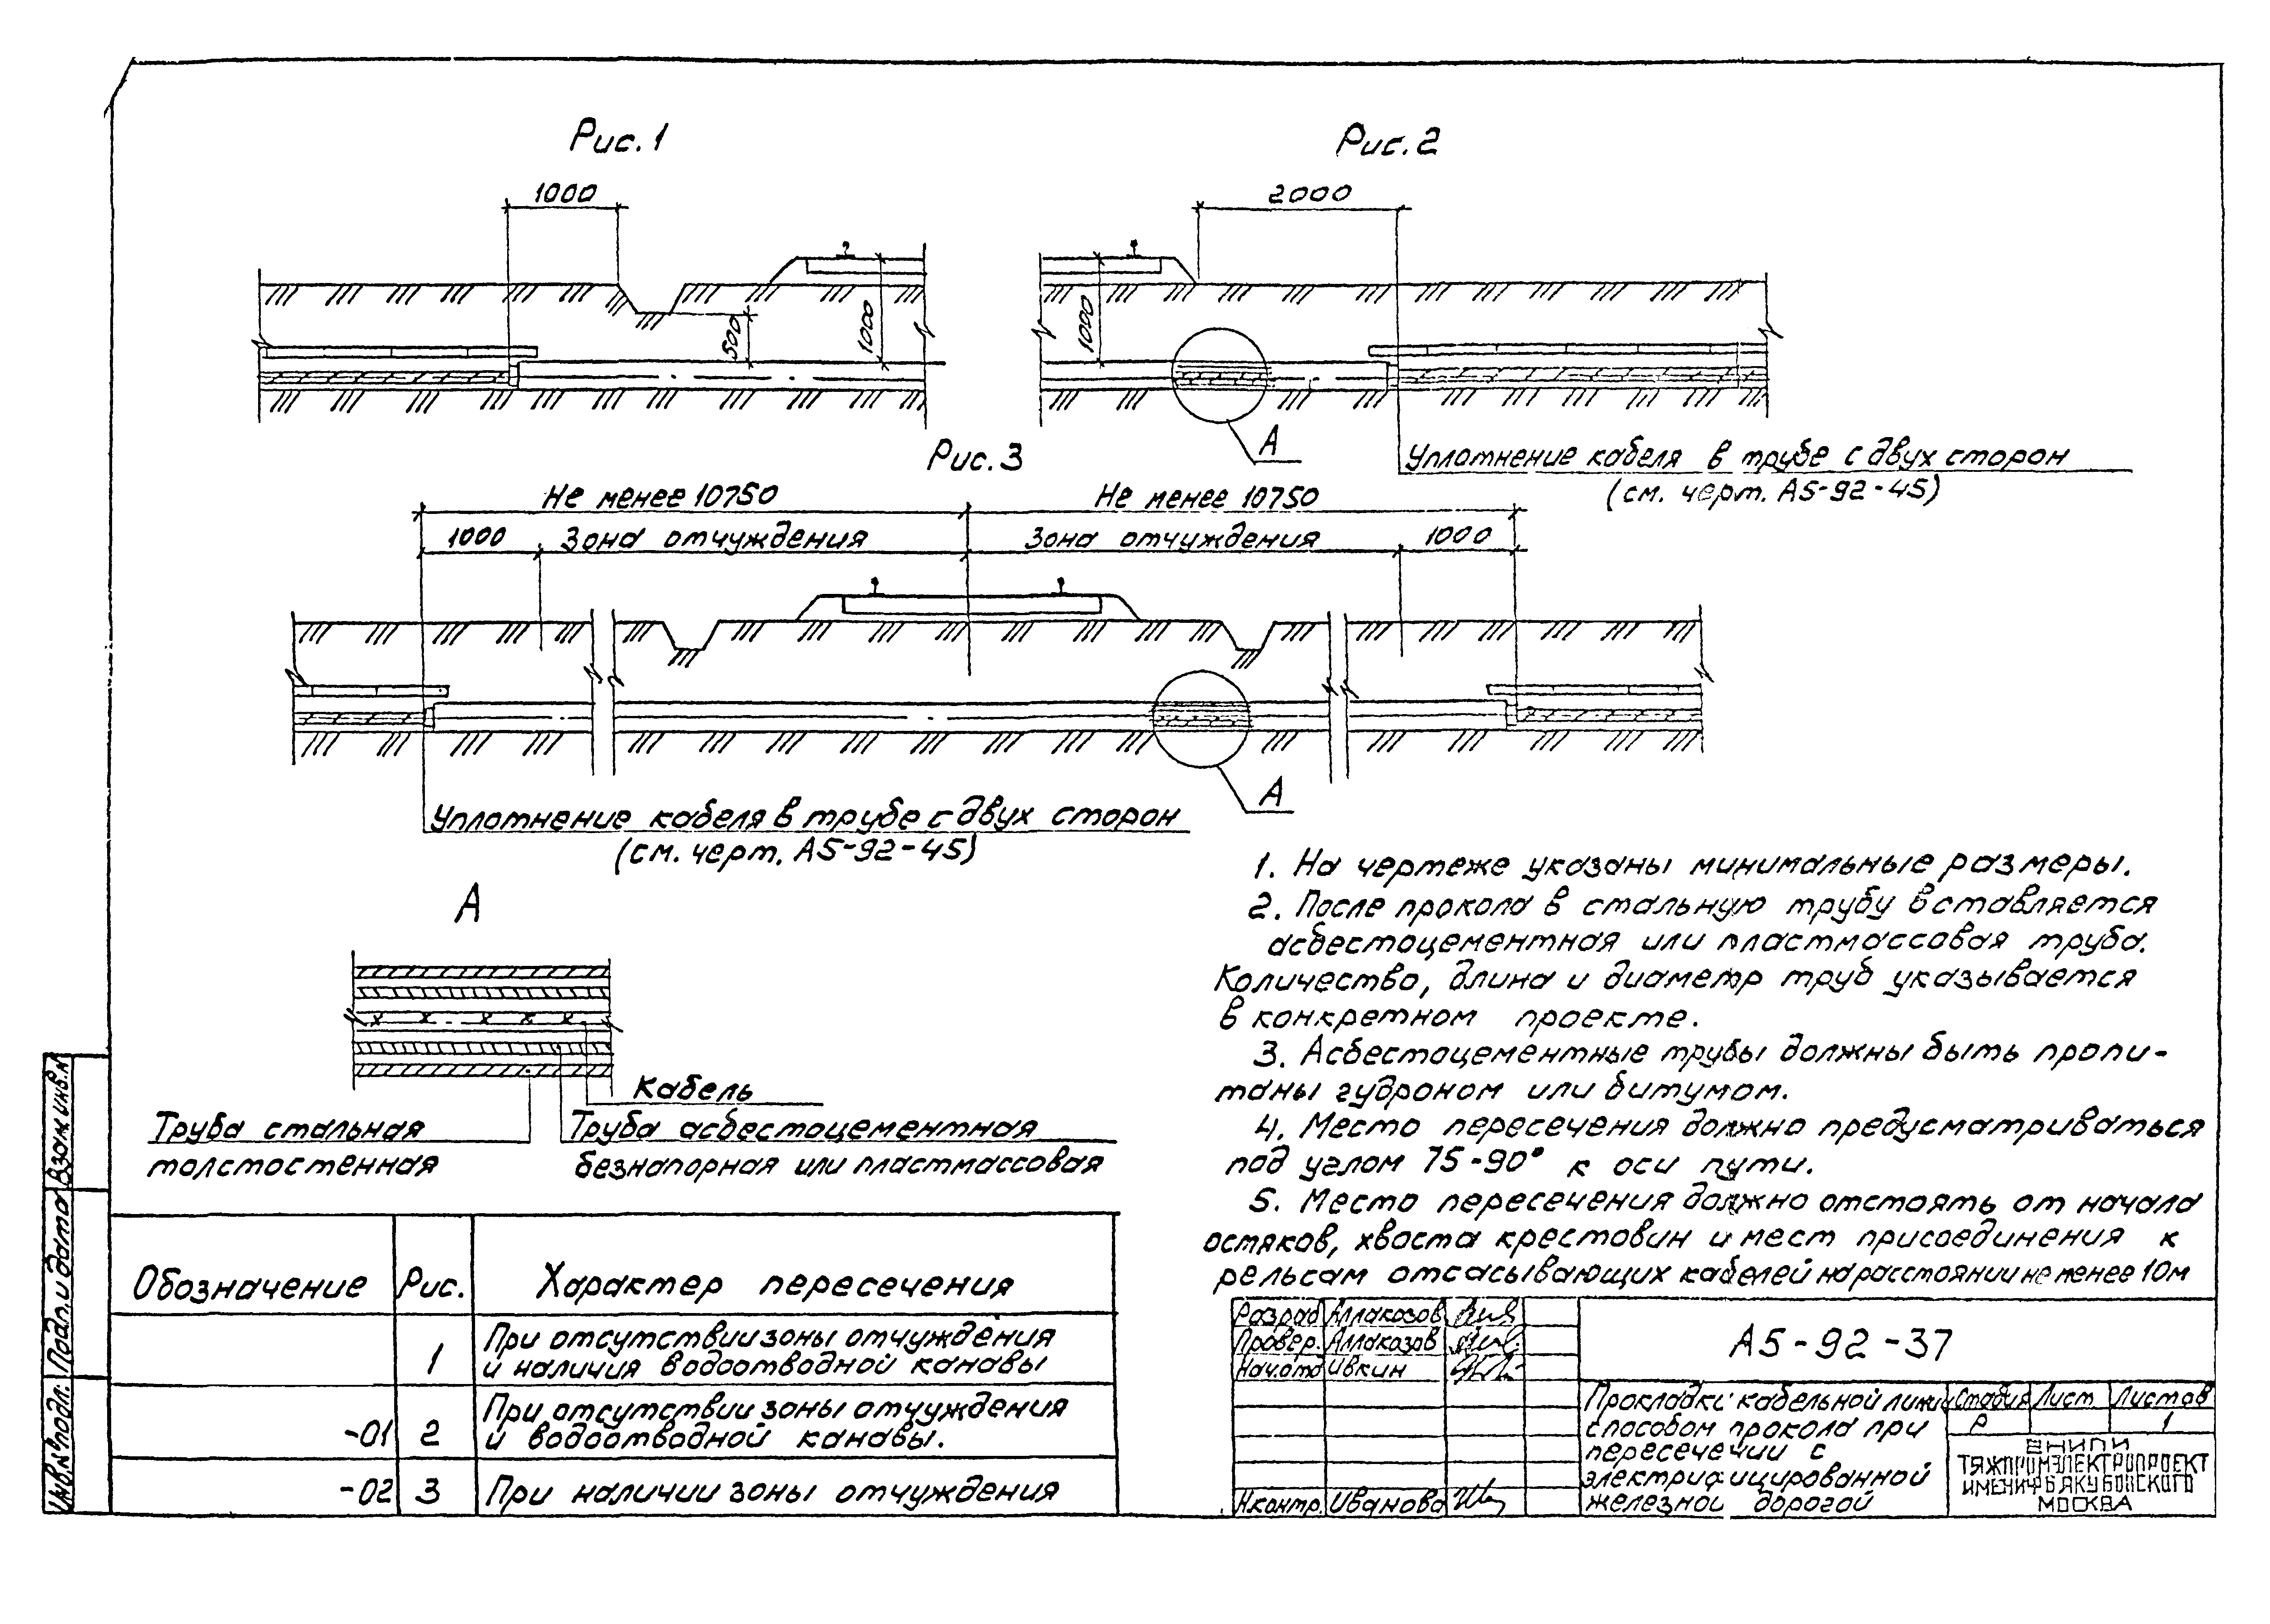 Рис.1
Рис.2
1000
2000
500
1000
1000
А
Уплотнение кабеля в трубе с двух сторон
(см. черт. А5-92-45)
Рис.3
Не менее 10750
Не менее 10750
1000
Зона отчуждения
Зона отчуждения
1000
А
Уплотнение кабеля в трубе с двух сторон
(см. черт. А5-92-45)
А
Кабель
Труба стальная
толстостенная
Труба асбестоцементная
безнапорная или пластмассовая
1. На чертеже указаны минимальные размеры.
2. После прокола в стальную трубу вставляется
асбестоцементная или пластмассовая труба.
Количество, длина и диаметр труб указывается
в конкретном проекте.
3. Асбестоцементные трубы должны быть пропи-
таны гудроном или битумом.
4. Место пересечения должно предусматриваться
под углом 75-90° к оси пути.
5. Место пересечения должно отстоять от начала
остяков, хвоста крестовин и мест присоединения к
рельсам отсасывающих кабелей на расстоянии не менее 10м
Обозначение Рис. Характер пересечения
1 При отсутствии зоны отчуждения
и наличия водоотводной канавы
-01 2 При отсутствии зоны отчуждения
и водоотводной канавы.
-02 3 При наличии зоны отчуждения
Разраб Аллакозов
Провер. Аллакозов
Нач.отд Ивкин
Н.контр. Иванова
А5-92-37
Прокладка кабельной линии
способом прокола при
пересечении с
электрифицированной
железной дорогой
Стадия Лист Листов
Р 1
ВНИПИ
ТЯЖПРОМЭЛЕКТРОПРОЕКТ
ИМЕНИ Ф.Б.ЯКУБОВСКОГО
МОСКВА
Взам.инв.№
Подп. и дата
Инв.№ подл.